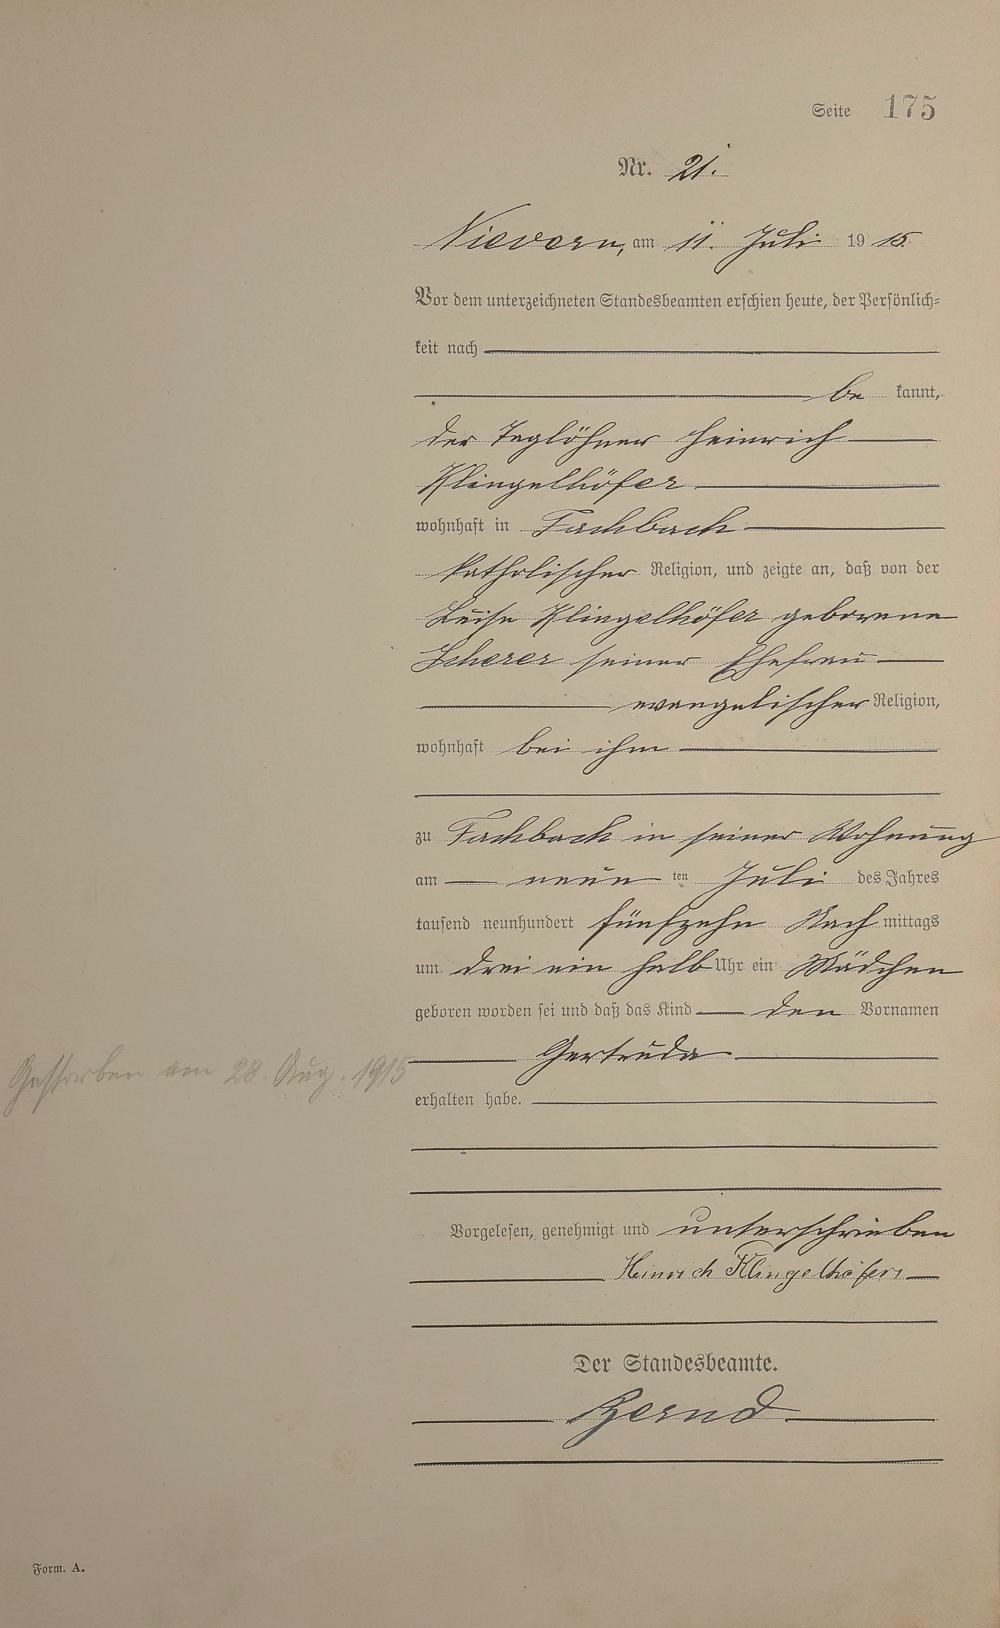 Seite 175
Nr. 21.
Nievern, am 11. Juli 1915
Vor dem unterzeichneten Standesbeamten erschien heute, der Persönlich-
keit nach
be kannt,
der Taglöhner Heinrich
Klingelhöfer
wohnhaft in Fachbach
katholischer Religion, und zeigte an, daß von der
Luise Klingelhöfer geborene
Scherer seiner Ehefrau
evangelischer Religion,
wohnhaft bei ihm
zu Fachbach in seiner Wohnung
am neun ten Juli des Jahres
tausend neunhundert fünfzehn Nach mittags
um drei ein halb Uhr ein Mädchen
geboren worden sei und daß das Kind den Vornamen
Gertruda
Gestorben am 28. Aug. 1915
erhalten habe.
Vorgelesen, genehmigt und unterschrieben
Heinrich Klingelhöfer
Der Standesbeamte.
Form. A.